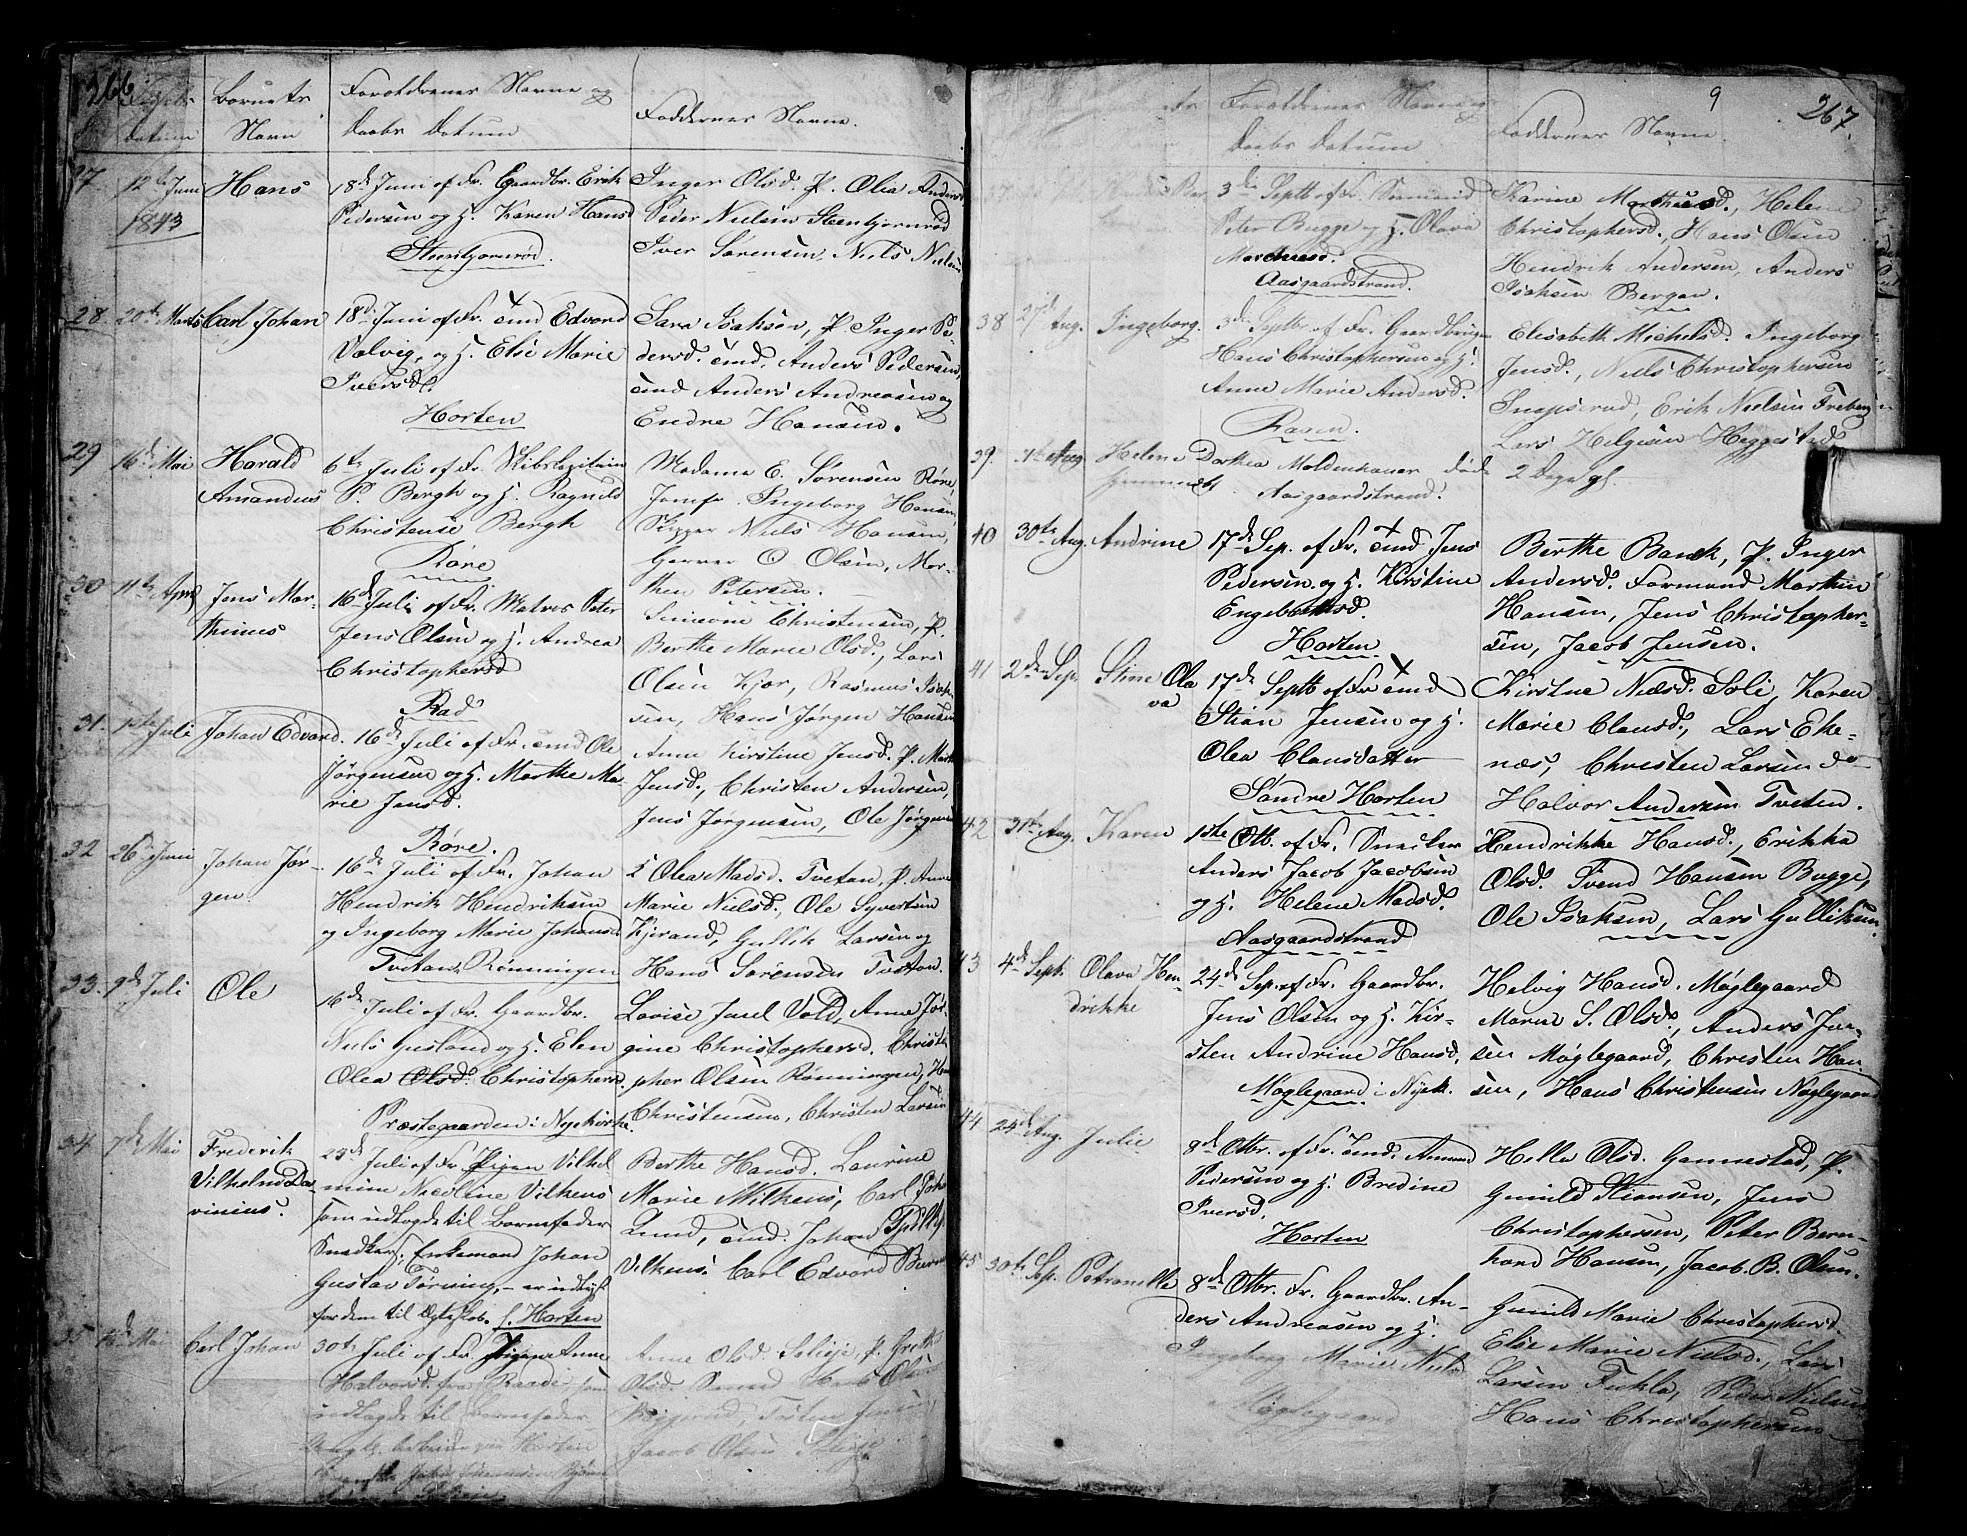 266
Fødsels
Datum
Barnets
Navn
Forældrenes Navne og
Daabs Datum
Faddernes Navne.
27
12te Juni
1843
Hans
18de Juni af Fr. Gaardbr. Erik
Pedersen og H. Karen Hansd
Steenbjørnrød.
Inger Olsd. P. Olea Andersd
Peder Nielsen Steenbjørnrød
Iver Sørensen, Niels Nielsen
28.
20de Marts
Carl Johan
18d Juni af Fr. Smd Edvard
Valvig, og H. Else Marie
Iversd.
Horten
Sara Isaksen, P. Inger Pe-
dersd. Smd. Anders Pedersen,
Smd Anders Andreasen og
Endre Hansen.
29
16de Mai
Harald
Amandus
6te Juli af Fr. Skibscapitain
P. Bergh og H. Ragnild
Christense Bergh
Røre
Madame E. Sørensen Røre,
Jomfr. Ingeborg Hansen,
Skipper Niels Hansen,
Garver O Olsen, Mor-
then Petersen.
30
11te April
Jens Mar-
thinus
16de Juli af Fr. Matros Peter
Jens Olsen og H. Andrea
Christophersd
Rad
Simeone Christensen, P.
Berthe Marie Olsd., Lars
Olsen Kjær, Rasmus Isak-
sen, Hans Jørgen Hansen
31.
1ste Juli
Johan Edvard.
16de Juli af Fr. Smd Ole
Jørgensen og H. Marthe Ma-
rie Jensd.
Røre.
Anne Kirstine Jensd. P. Marthe
Jensd., Christen Andersen,
Jens Jørgensen, Ole Jørgensen
32
26de Juni
Johan Jør-
gen
16de Juli af Fr. Johan
Hendrik Hendriksen
og Ingeborg Marie Johansd
Tvetan, Rønningen
Olea Madsd. Tvetan, P. Anne
Marie Nielsd., Ole Syvertsen
Kjerand, Gullik Larsen og
Hans Sørensen Tvetan.
33.
9de Juli
Ole
16de Juli af Fr. Gaardbr.
Niels Gusland og H. Elen
Olea Olsd. Christophersd.
Præstegaarden i Nyekirke.
Lovise Juel Vold, Anne Jør-
gine Christophersd. Christo-
pher Olsen Rønningen,
Christensen, Christen Larsen
34.
7de Mai
Frederik
Vilhelm Da-
vinius.
23de Juli af Fr. Pigen Vilhel
mine Nicoline Vilkens
som udlagde til Barnefader
Snedker, Enkemand Johan
Gustav Tørning, – er udlyst
for dem til Ægteskab. f. Horten
Berthe Hansd. Laurine
Marie Milkens, Carl Joh
Lund, Smd. Johan
Vilkens. Carl Edvard
35
14de Mai
Carl Johan
30te Juli af Fr. Pigen Anne
Halvorsd. fra Raade – som
udlagde til Barnefader
Anne Olsd. P. Grethe
Olsd. Olsen
Jacob Olsen
9
267.
Forældrenes Navne og
Daabs Datum
Faddernes Navne.
3de Septb af Fr. Sømand
Peter Bugge og H. Olava
Marthesd.
Aasgaardstrand.
Karine Mathesd., Helene
Christophersd., Hans Olsen
Hendrik Andersen, Anders
Isaksen Bergan.
38
27d Aug.
Ingeborg.
3de Septbr af Fr. Gaardbruger
Hans Christophersen og H.
Anne Marie Andersd.
Raaen.
Elisabeth Michelsd. Ingeborg
Jensd., Niels Christophersen
Snapsrød, Erik Nielsen Freberg
Lars Helgesen Heggestad
39.
31te Aug
Helene Dorthea Moldenhauer døde
hjemmedt. Aasgaardstrand.
2 Dage gl.
40
30te Aug.
Andrine
17de Sep. af Fr. Smd Jens
Pedersen og H. Kirstine
Engebretsd.
Horten
Berthe Baeck, P. Inger
Andersd. Formand Marthin
Hansen, Jens Christopher-
sen, Jacob Jensen.
41
2den Sep.
Stine Ola
va
17de Septb af Fr Smd
Stian Jensen og H.
Olea Clausdatter
Søndre Horten
Kirstine Nielsd. Soli, Karen
Marie Clausd., Lars Eke-
næs, Christen Larsen do
Halvor Andersen Tveten.
42
31te Aug.
Karen
1ste Otb. af Fr. Snedker
Anders Jacob Jacobsen
og H. Helene Madsd.
Aasgaardstrand
Hendrikke Hansd., Erikka
Olsd. Svend Hansen Bugge,
Ole Isaksen, Lars Gulliksen
43
4de Septb.
Olava Hen-
drikke
24de Sep. af Fr. Gaardbr.
Jens Olsen og H. Kir-
sten Andrine Hansd.
Møglegaard i Nyek.
Helvig Hansd. Møglegaard
Maren S. Olsd., Anders Jan-
sen Møglegaard, Christen Han
sen, Hans Christensen Møglegaard
44
24de Aug.
Julie
8de Otbr. af Fr. Smd. Amund
Pedersen og H. Bredine
Iversd.
Horten
Helle Olsd. Gannestad, P.
Gunild Stiansen, Jens
Christophersen, Peter Bern-
hard Hansen, Jacob. B. Olsen.
45
30te Sep.
Petronelle
8de Otbr. Fr. Gaardbr. An-
ders Andreasen og H.
Ingeborg Marie Nielsd
Møglegaard
Gunild Marie Christophersd.
Else Marie Nielsd., Lars
Larsen Fekla, Peder Nielsen
Hans Christophersen